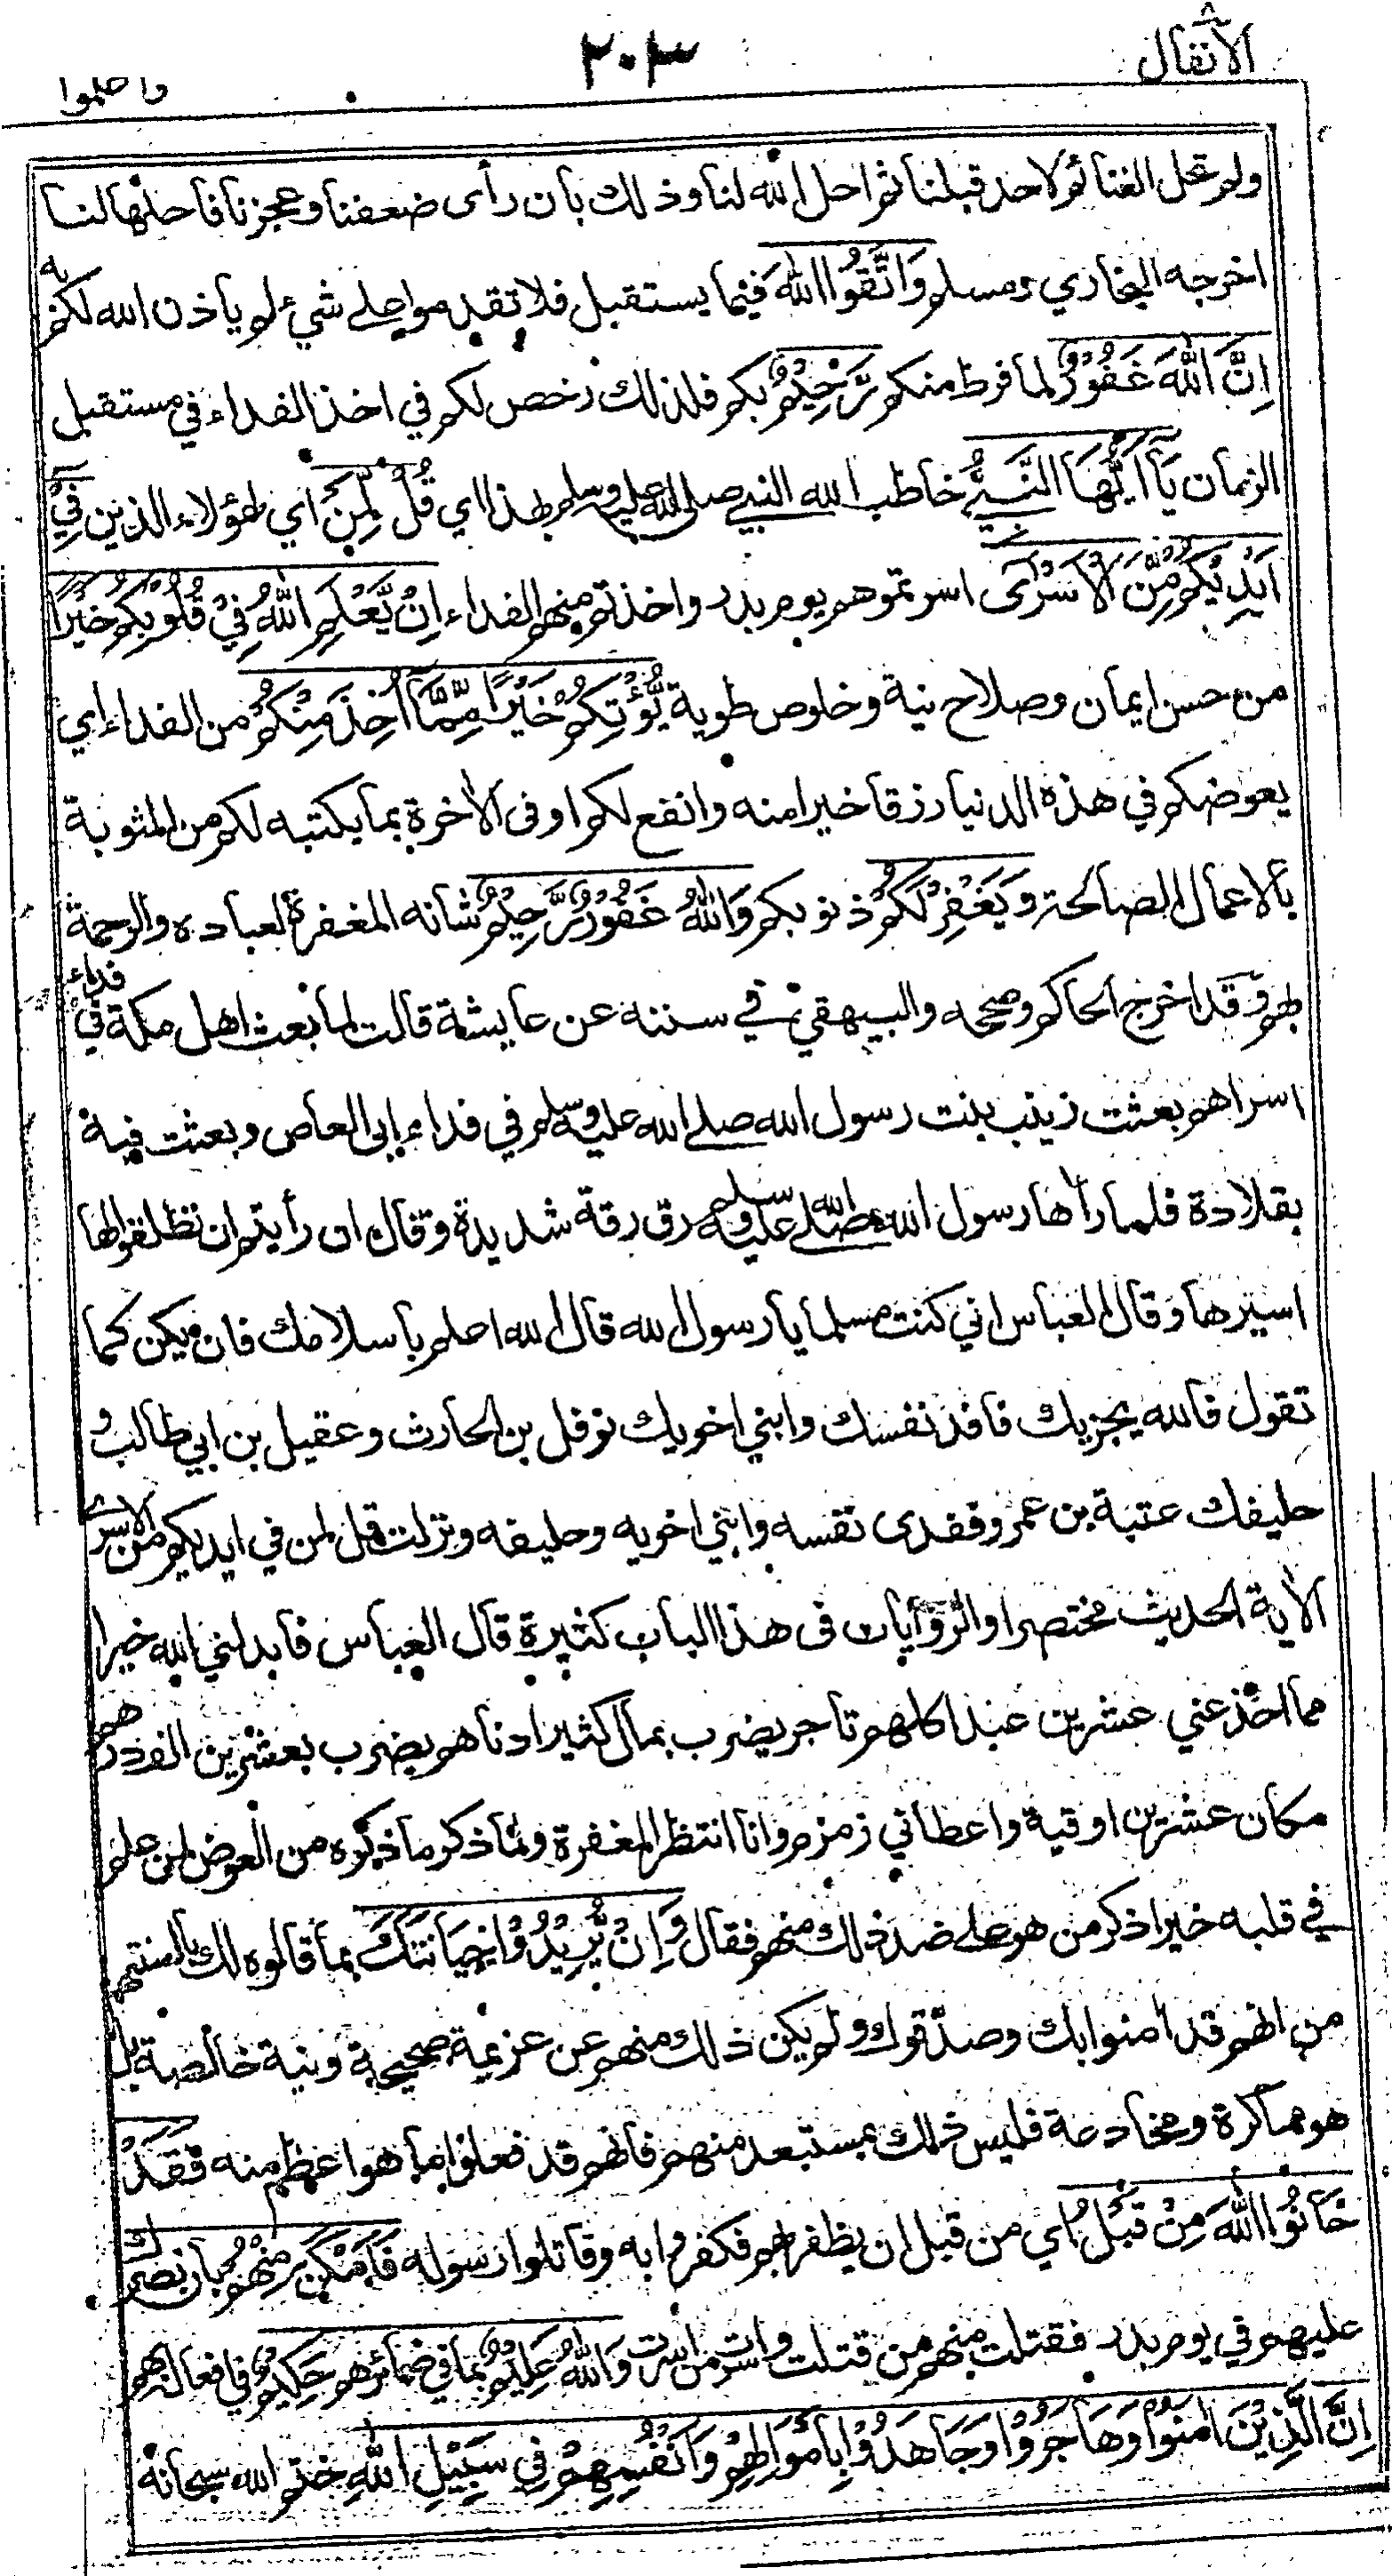 الأنفال ٨
٢٠٣
واعلموا
ولم تحل الغنائم لاحد قبلنا ثم احل الله لنا وذلك بأن رأى ضعفنا وعجزنا فاحلها لنا
اخرجه البخاري ومسلم وَاتَّقُوا اللهَ فيما يستقبل فلا تقدموا على شيء لم يأذن الله لكم به
اِنَّ اللهَ غَفُوْرٌ لما فرط منكم رَّحِيْمٌ بكم فلذلك رخص لكم في اخذ الفداء في مستقبل
الزمان يَآ اَيُّهَا النَّبِيُّ خاطب الله النبي صلى الله عليه وسلم بهذا اي قُلْ لِّمَنْ اي لهؤلاء الذين فِيْٓ
اَيْدِيْكُمْ مِّنَ الْاَسْرٰٓى اسرتموهم يوم بدر واخذتم منهم الفداء اِنْ يَّعْلَمِ اللهُ فِيْ قُلُوْبِكُمْ خَيْرًا
من حسن ايمان وصلاح نية وخلوص طوية يُّؤْتِكُمْ خَيْرًا مِّمَّآ اُخِذَ مِنْكُمْ من الفداء اي
يعوضكم في هذه الدنيا رزقا خيرا منه وانفع لكم او فى الاٰخرة بما يكتبه لكم من المثوبة
بالاعمال الصالحة وَيَغْفِرْ لَكُمْ ذنوبكم وَاللهُ غَفُوْرٌ رَّحِيْمٌ شأنه المغفرة لعباده والرحمة
بهم وقد اخرج الحاكم وصححه والبيهقي في سننه عن عايشة قالت لما بعث اهل مكة في فداء
اسراهم بعثت زينب بنت رسول الله صلى الله عليه وسلم في فداء ابى العاص وبعثت فيه
بقلادة فلما رأها رسول الله صلى الله عليه وسلم رق رقة شديدة وقال ان رأيتم ان تطلقوا لها
اسيرها وقال العباس اني كنت مسلما يا رسول الله قال الله اعلم باسلامك فان يكن كما
تقول فالله يجزيك فافد نفسك وابني اخويك نوفل بن الحارث وعقيل بن ابي طالب و
حليفك عتبة بن عمرو ففدى نفسه وابني اخويه وحليفه ونزلت قل لمن في ايديكم من الاسرى
الاٰية الحديث مختصرا والروايات فى هذا الباب كثيرة قال العباس فابدلني الله خيرا
مما اخذ عني عشرين عبدا كلهم تاجر يضرب بمال كثير ادناهم يضرب بعشرين الف درهم
مكان عشرين اوقية واعطاني زمزم وانا انتظر المغفرة ولما ذكر ما ذكره من العوض لمن علم
في قلبه خيرا ذكر من هو على ضد ذلك منهم فقال وَاِنْ يُّرِيْدُوْا خِيَانَتَكَ بما قالوه لك بالسنتهم
من انهم قد اٰمنوا بك وصدّقوك ولم يكن ذلك منهم عن عزيمة صحيحة ونية خالصة بل
هو مماكرة ومخادعة فليس ذلك بمستبعد منهم فانهم قد فعلوا ما هو اعظم منه فَقَدْ
خَانُوا اللهَ مِنْ قَبْلُ اي من قبل ان يظفر بهم فكفروا به وقاتلوا رسوله فَاَمْكَنَ مِنْهُمْ بان نصرك
عليهم في يوم بدر فقتلت منهم من قتلت واسرت من اسرت وَاللهُ عَلِيْمٌ بما في ضمائرهم حَكِيْمٌ في افعاله بهم
اِنَّ الَّذِيْنَ اٰمَنُوْا وَهَاجَرُوْا وَجَاهَدُوْا بِاَمْوَالِهِمْ وَاَنْفُسِهِمْ فِيْ سَبِيْلِ اللهِ ختم الله سبحانه